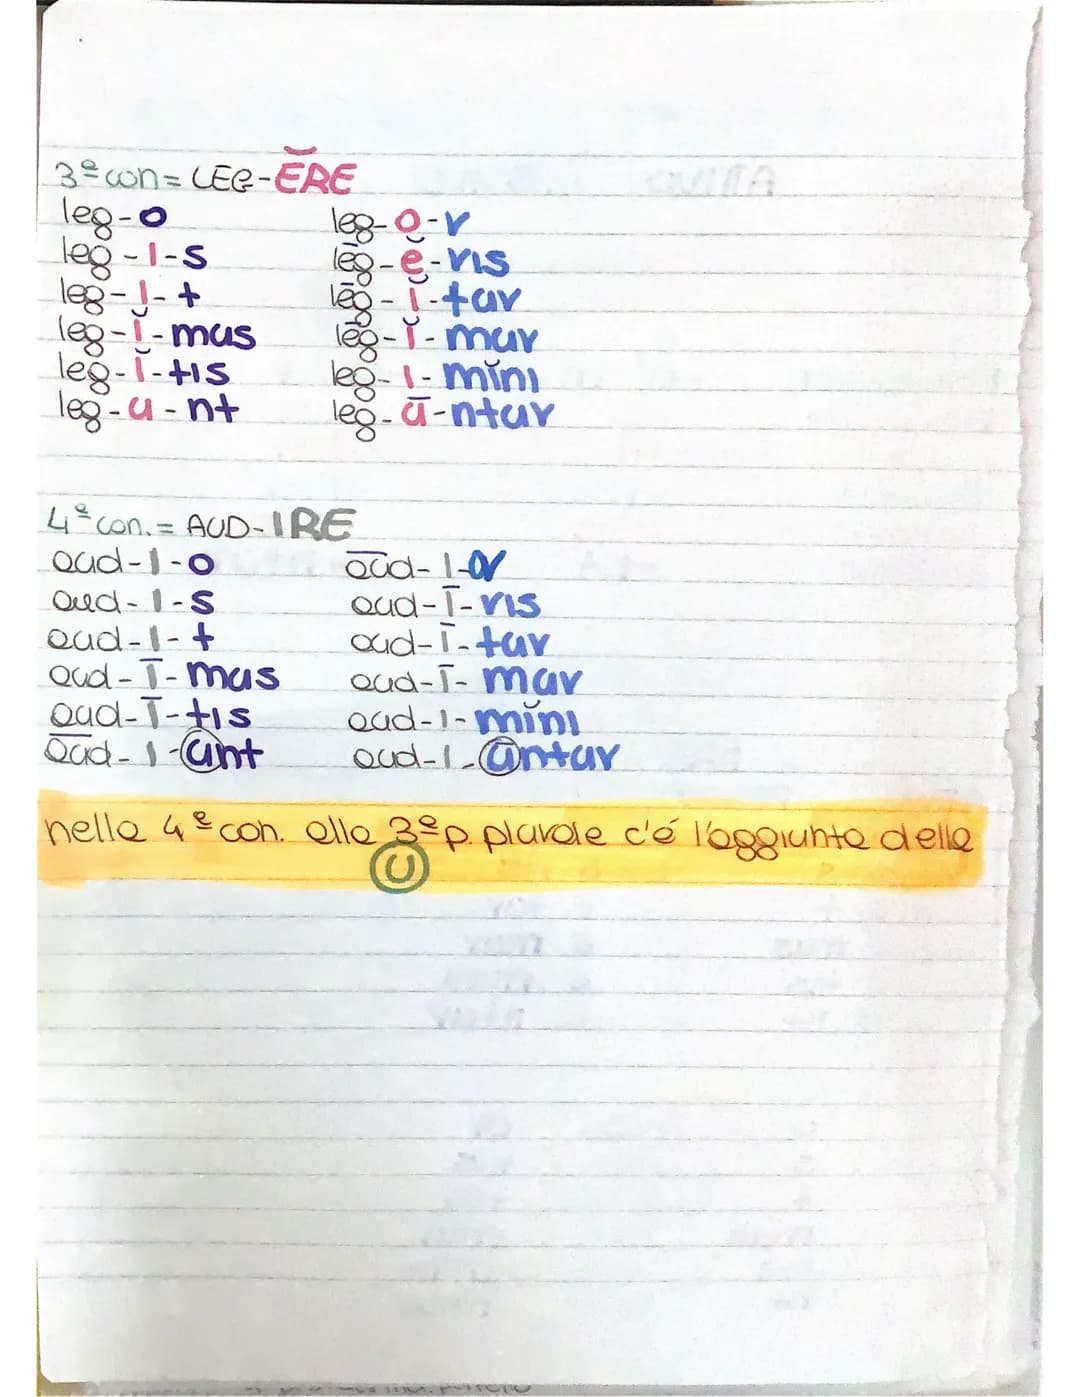 3ª con = LEG-ĔRE
leg-o leg-o-r
leg-i-s lēg-ĕ-ris
leg-i-t lēg-ĭ-tur
leg-ĭ-mus lēg-ĭ-mur
leg-ĭ-tis leg-i-mĭni
leg-u-nt leg-ū-ntur
4ª con. = AUD-IRE
aud-i-o aūd-i-or
aud-i-s aud-ī-ris
aud-i-t aud-ī-tur
aud-ī-mus aud-ī-mur
aud-ī-tis aud-i-mĭni
aūd-i-unt aud-i-untur
nella 4ª con. alla 3ª p. plurale c'é l'aggiunta della
U